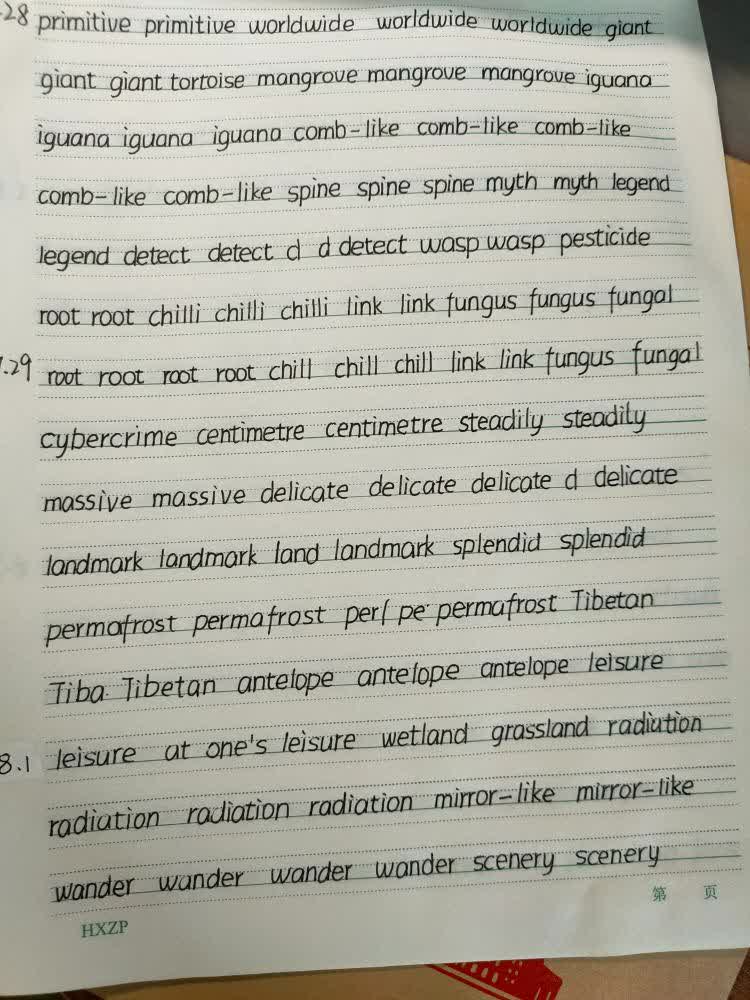 .28 primitive primitive worldwide worldwide worldwide giant
giant giant tortoise mangrove mangrove mangrove iguana
iguana iguana iguana comb-like comb-like comb-like
comb-like comb-like spine spine spine myth myth legend
legend detect detect d d detect wasp wasp pesticide
root root chilli chilli chilli link link fungus fungus fungal
7.29 root root root root chill chill chill link link fungus fungal
cybercrime centimetre centimetre steadily steadily
massive massive delicate delicate delicate d delicate
landmark landmark land landmark splendid splendid
permafrost permafrost perf pe permafrost Tibetan
Tiba Tibetan antelope antelope antelope leisure
8.1 leisure at one's leisure wetland grassland radiution
radiation radiation radiation mirror-like mirror-like
wander wander wander wander scenery scenery
第 页
HXZP